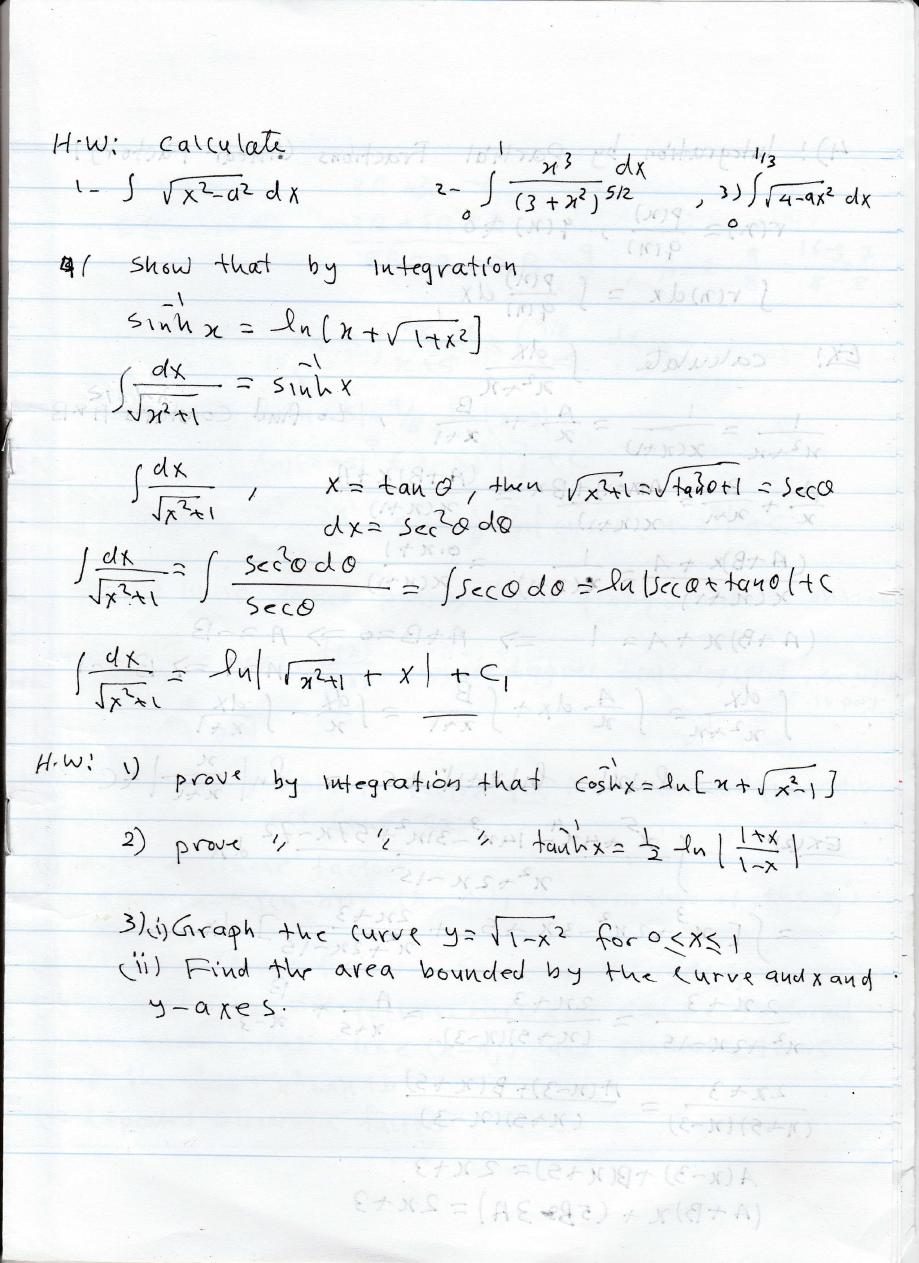 H.W: calculate
1- ∫ √(x²-a²) dx 2- ∫₀¹ x³ dx / (3+x²)^5/2 , 3) ∫₀^1/3 √(4-9x²) dx
4/ show that by integration
sinh⁻¹ x = ln [x + √(1+x²)]
∫ dx/√(x²+1) = sinh⁻¹ x
∫ dx/√(x²+1) , x = tan θ, then √(x²+1) = √(tan²θ+1) = secθ
dx = sec²θ dθ
∫ dx/√(x²+1) = ∫ sec²θ dθ / secθ = ∫ secθ dθ = ln |secθ + tanθ| + C
∫ dx/√(x²+1) = ln | √(x²+1) + x | + C₁
H.W: 1) prove by integration that cosh⁻¹x = ln [x + √(x²-1)]
2) prove " " " tanh⁻¹x = ½ ln | (1+x)/(1-x) |
3) (i) Graph the curve y = √(1-x²) for 0≤x≤1
(ii) Find the area bounded by the curve and x and
y-axes.